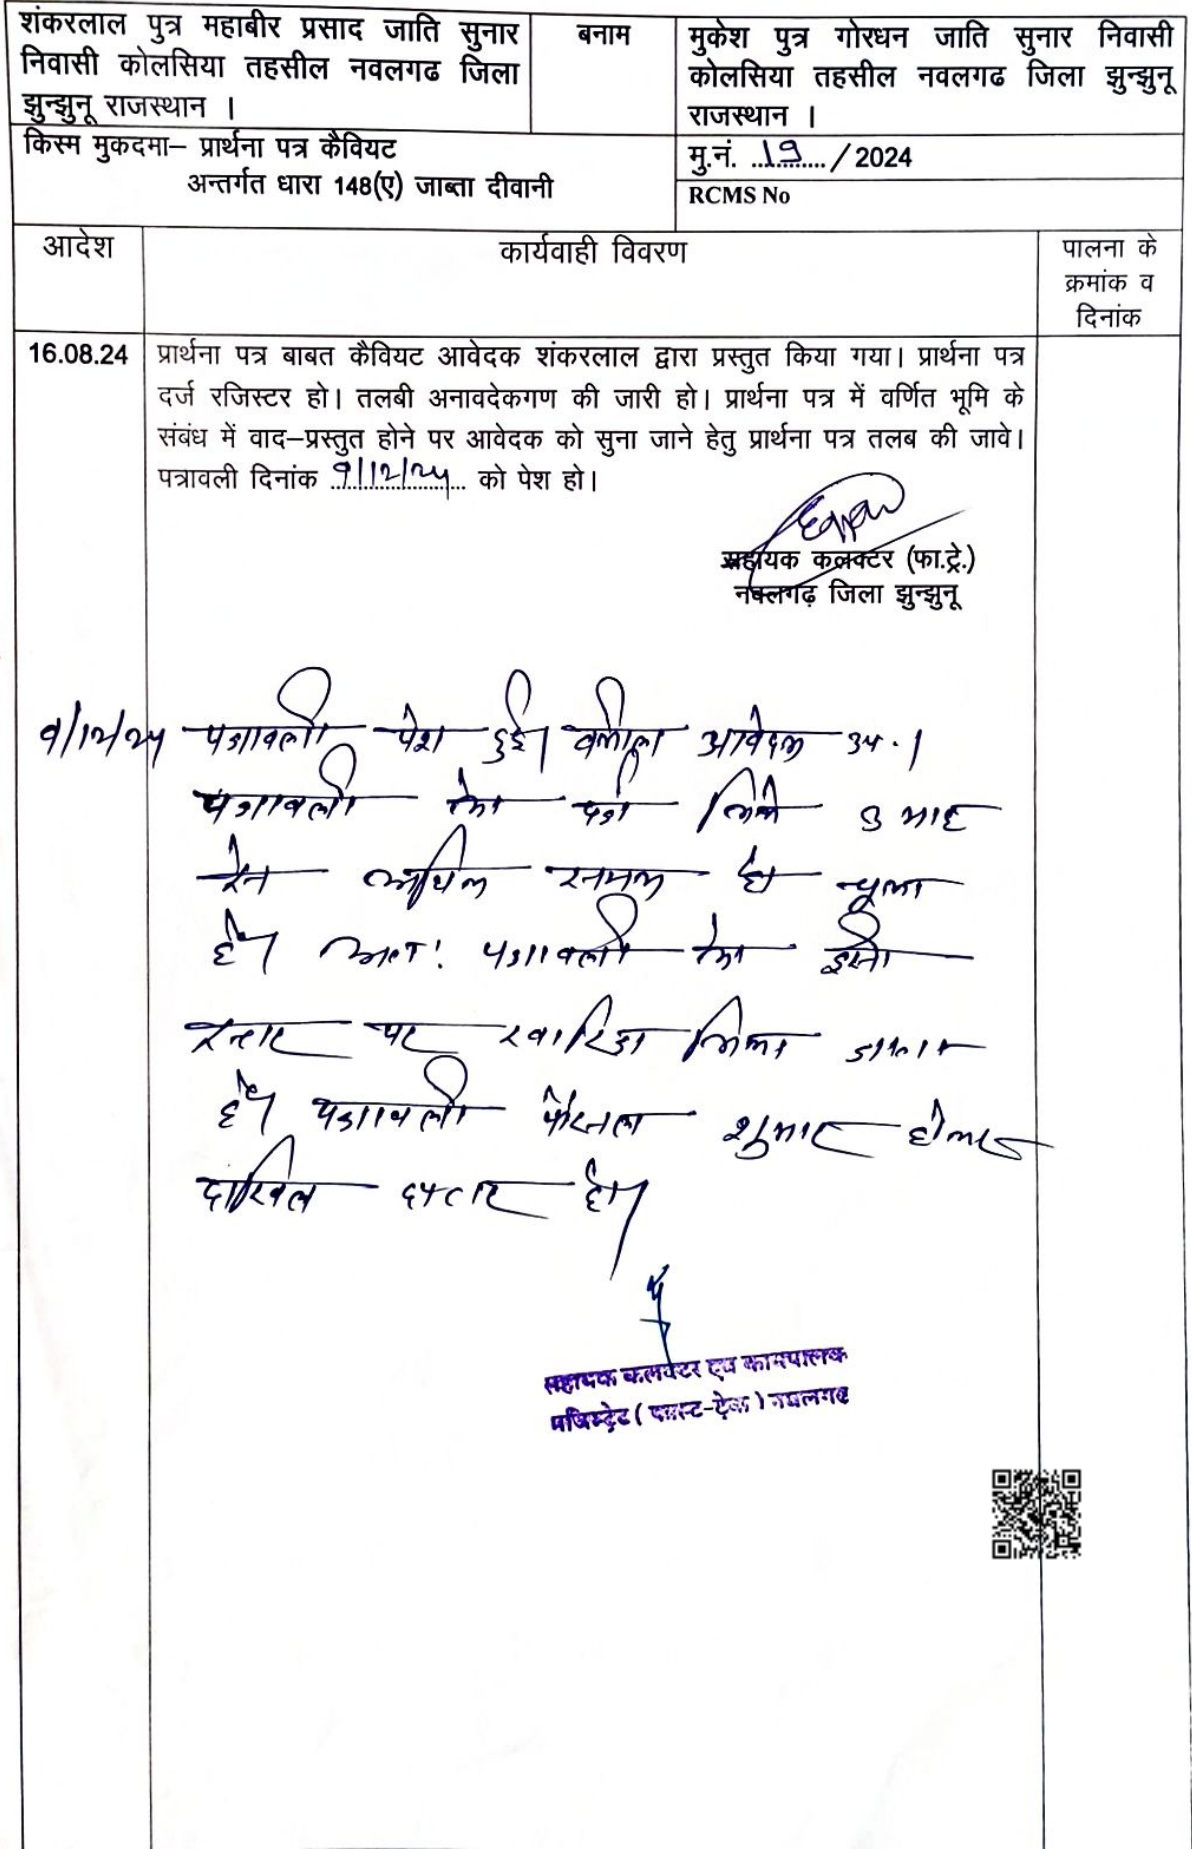 शंकरलाल पुत्र महाबीर प्रसाद जाति सुनार
निवासी कोलसिया तहसील नवलगढ जिला
झुन्झुनू राजस्थान ।
बनाम
मुकेश पुत्र गोरधन जाति सुनार निवासी
कोलसिया तहसील नवलगढ जिला झुन्झुनू
राजस्थान ।
किस्म मुकदमा– प्रार्थना पत्र कैवियट
अन्तर्गत धारा 148(ए) जाब्ता दीवानी
मु.नं. ..19.. / 2024
RCMS No
आदेश
कार्यवाही विवरण
पालना के
क्रमांक व
दिनांक
16.08.24
प्रार्थना पत्र बाबत कैवियट आवेदक शंकरलाल द्वारा प्रस्तुत किया गया। प्रार्थना पत्र
दर्ज रजिस्टर हो। तलबी अनावदेकगण की जारी हो। प्रार्थना पत्र में वर्णित भूमि के
संबंध में वाद–प्रस्तुत होने पर आवेदक को सुना जाने हेतु प्रार्थना पत्र तलब की जावे।
पत्रावली दिनांक 9/12/24 को पेश हो।
सहायक कलक्टर (फा.ट्रे.)
नवलगढ़ जिला झुन्झुनू
9/12/24 पत्रावली पेश हुई। वकील आवेदक उप.।
पत्रावली को दर्ज किये 3 माह
से अधिक समय हो चुका
है। अतः पत्रावली को इसी
स्तर पर खारिज किया जाता
है। पत्रावली फैसल शुमार होकर
दाखिल दफ्तर हो।
सहायक कलक्टर एवं कार्यपालक
मजिस्ट्रेट ( फास्ट-ट्रेक ) नवलगढ